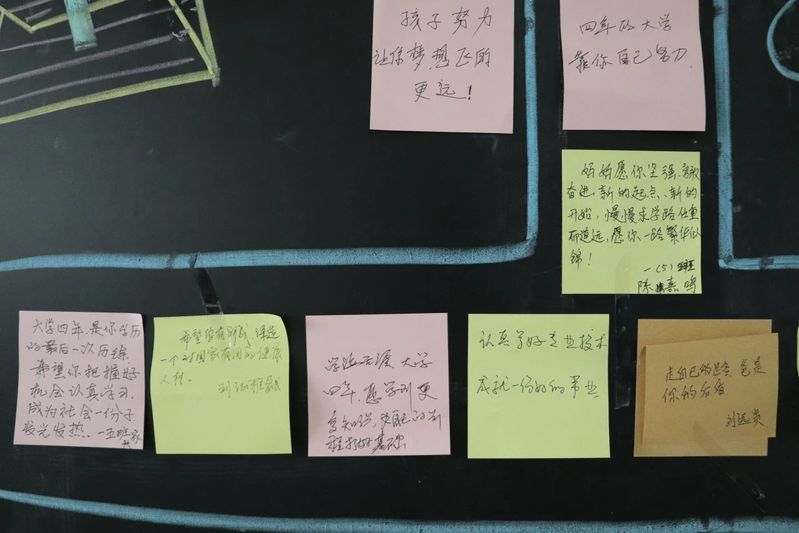 孩子努力
让你梦想飞的
更远！
四年的大学
靠你自己努力.
妈妈愿你坚强、勇敢
奋进,新的起点、新的
开始，慢慢求学路任重
而道远,愿你一路繁华似
锦！
一(5)班
陈嘉鸣
大学四年,是你学历
的最后一次历练.
希望你把握好
机会认真学习.
成为社会一份子
发光发热.
一个对国家有用的
人材.
学海无涯 大学
四年,愿学到更
多知识,
认真学好专业技术
成就一份好的事业
走自己的路
你的后盾
刘远芳